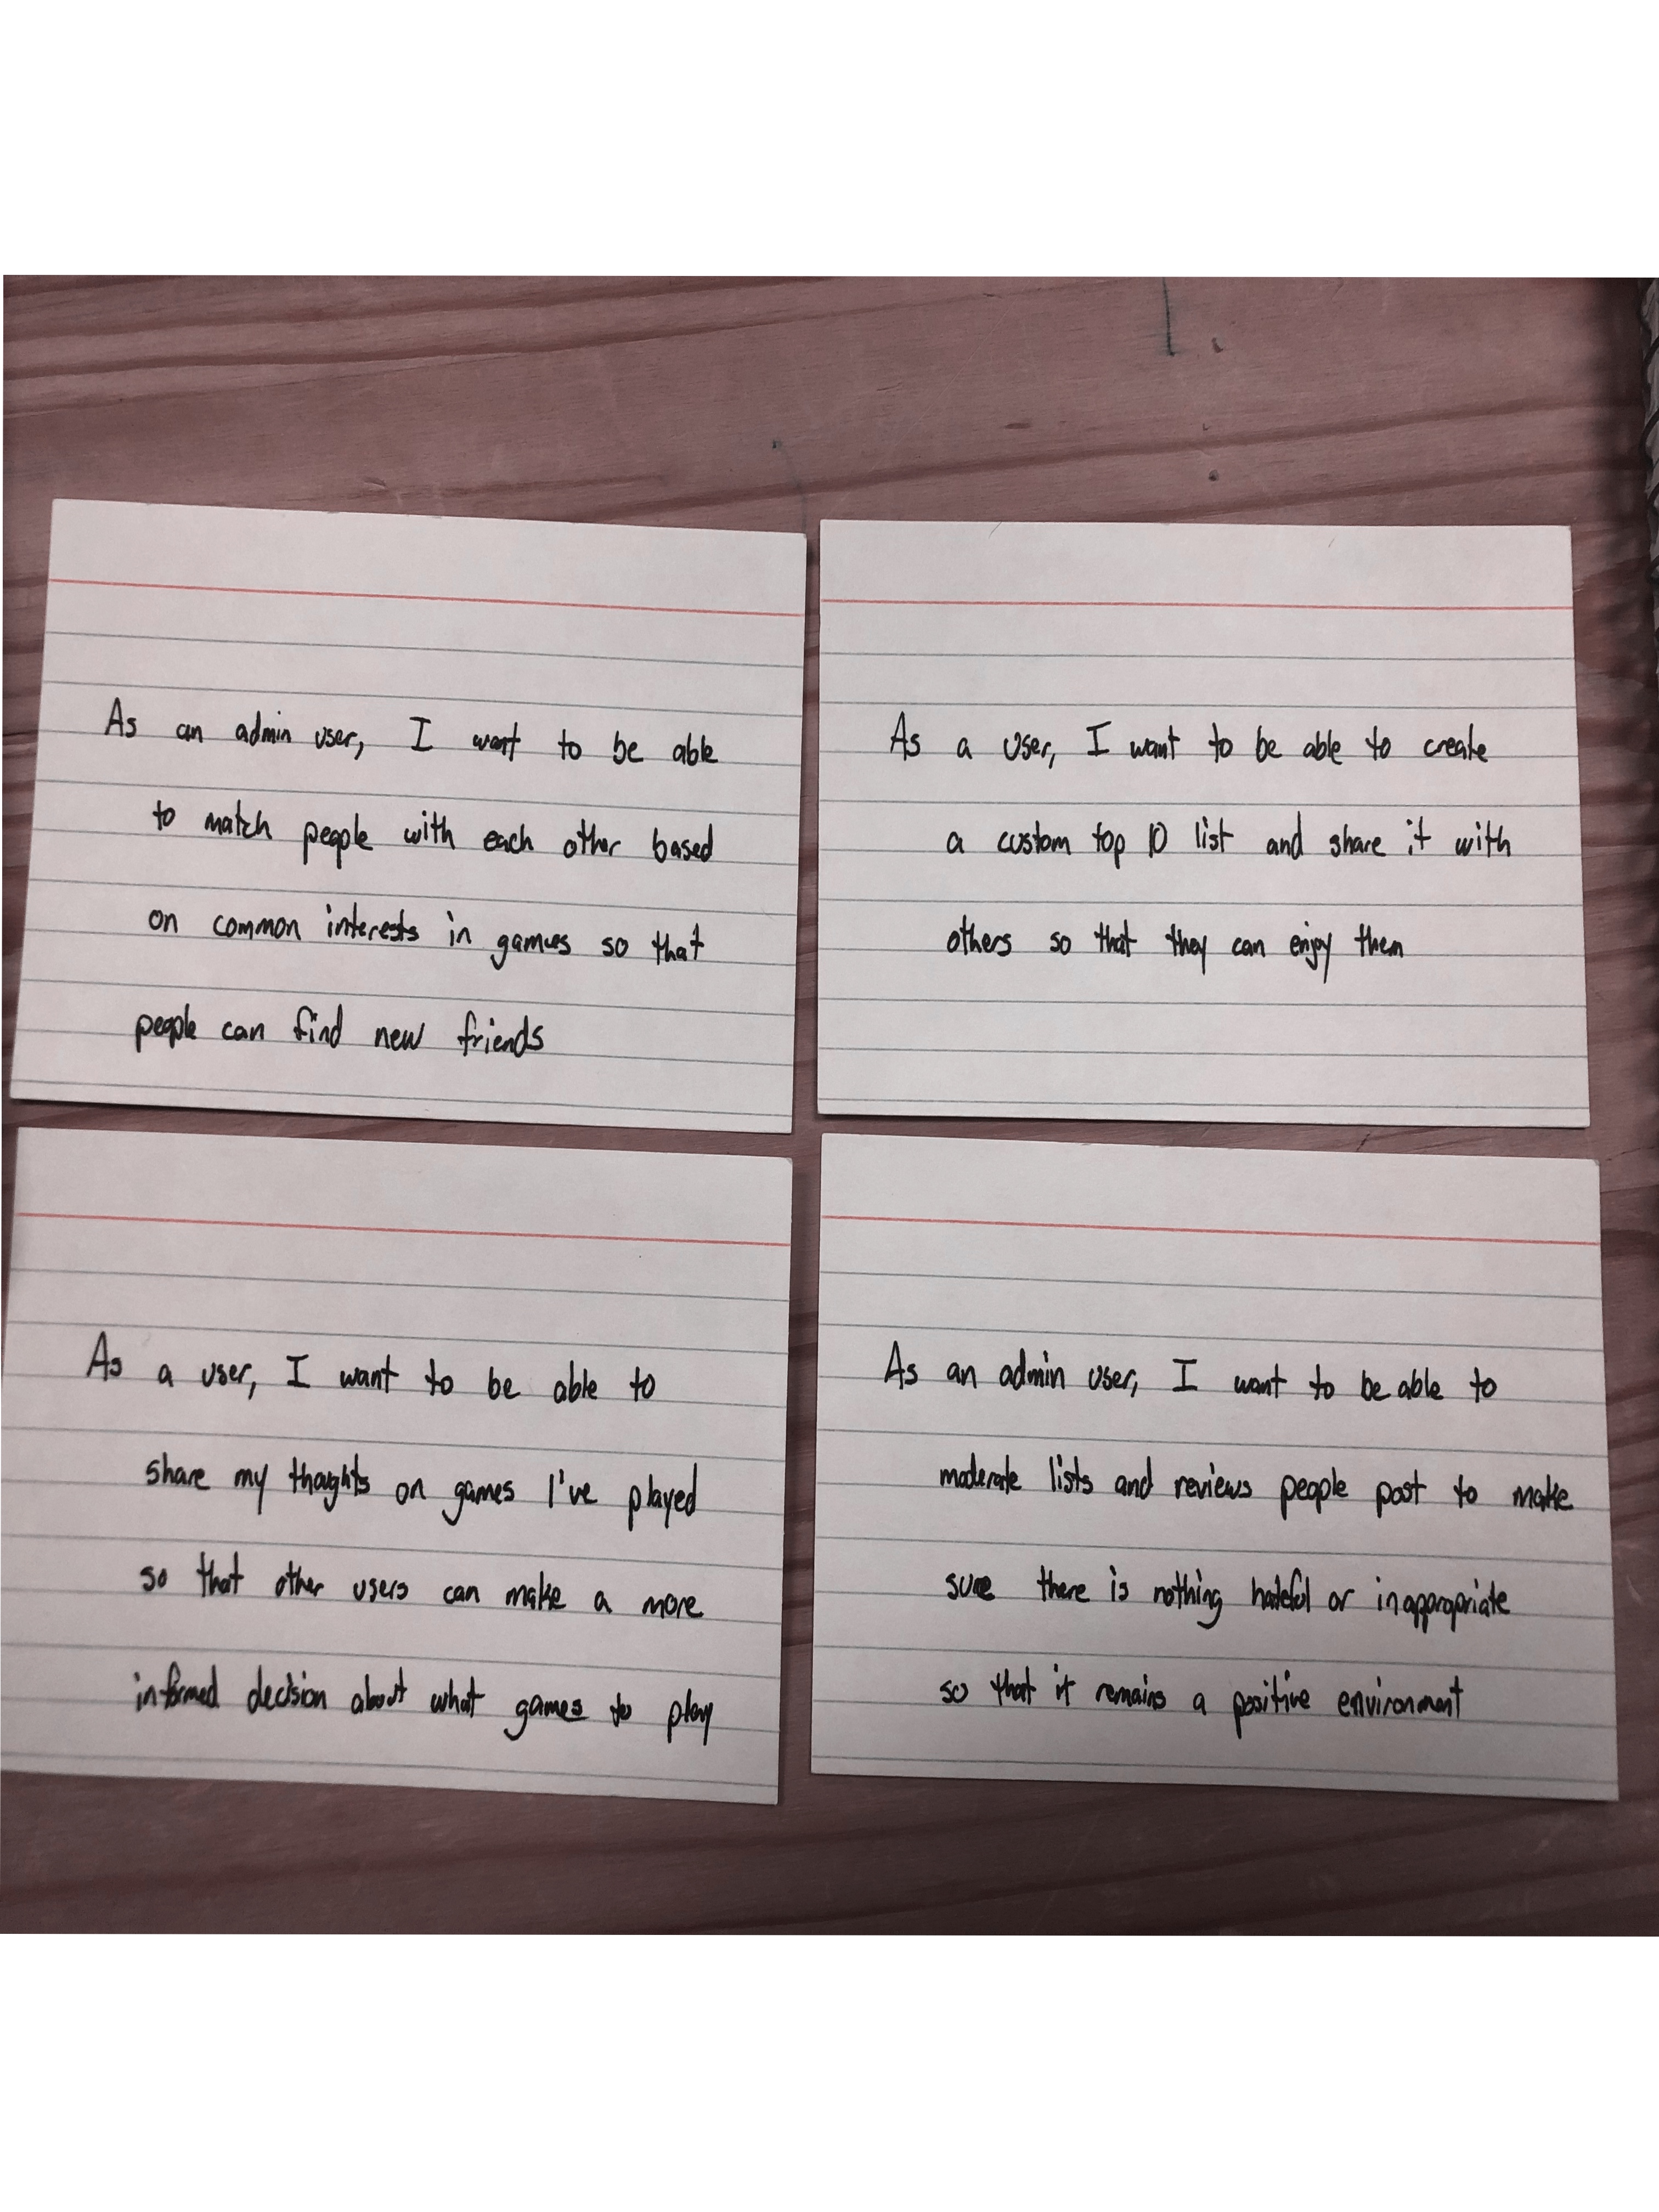 As an admin user, I want to be able
to match people with each other based
on common interests in games so that
people can find new friends
As a user, I want to be able to create
a custom top 10 list and share it with
others so that they can enjoy them
As a user, I want to be able to
share my thoughts on games I've played
so that other users can make a more
informed decision about what games to play
As an admin user, I want to be able to
moderate lists and reviews people post to make
sure there is nothing hateful or inappropriate
so that it remains a positive environment